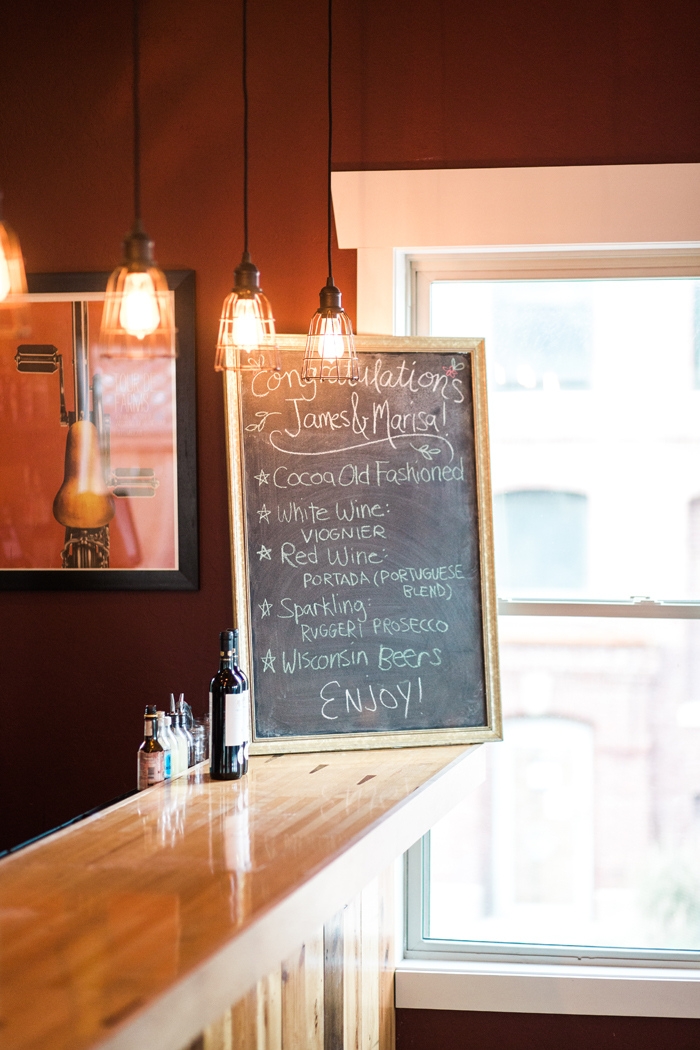 Congratulations
James & Marisa!
☆ Cocoa Old Fashioned
☆ White Wine:
VIOGNIER
☆ Red Wine:
PORTADA (PORTUGUESE
BLEND)
☆ Sparkling:
RUGGERI PROSECCO
☆ Wisconsin Beers
ENJOY!